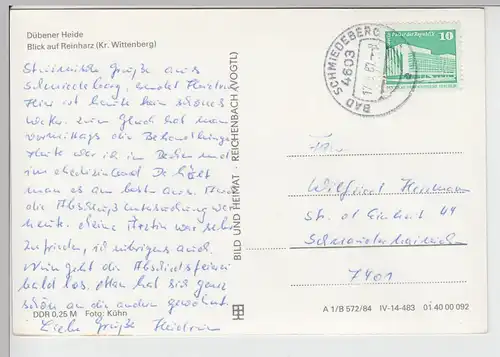 Dübener Heide
Blick auf Reinharz (Kr. Wittenberg)
Stürmische Grüße aus
Schmiedeberg, sendet Heidrun.
Hier ist heute kein schönes
Wetter. Zum Glück hat man
vormittags die Behandlungen
heute war ich im Becken und
im
man es am besten aus. Auch
die Abschlußuntersuchung war
heute. Meine Ärztin war sehr
zufrieden, ich übrigens auch.
Nun geht die Abschiedsfeierei
bald los. Man hat sich ganz
schön an die andern gewöhnt.
Liebe Grüße Heidrun
DDR 0,25 M Foto: Kühn
BILD UND HEIMAT REICHENBACH (VOGTL)
BAD SCHMIEDEBERG
4603
Palast der Republik 10
Wilfried
Str. d. Einheit 44
7401
A 1/B 572/84 IV-14-483 01 40 00 092